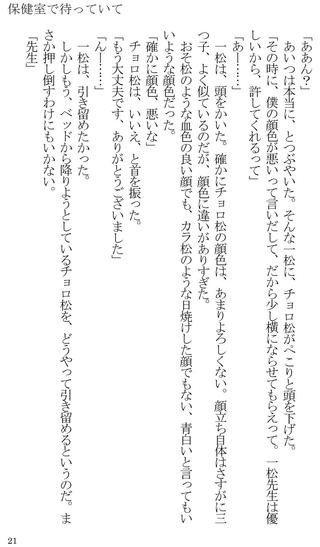 保健室で待っていて
「ああん？」
あいつは本当に、とつぶやいた。そんな一松に、チョロ松がぺこりと頭を下げた。
「その時に、僕の顔色が悪いって言いだして、だから少し横にならせてもらえって。一松先生は優
しいから、許してくれるって」
「あー……」
一松は、頭をかいた。確かにチョロ松の顔色は、あまりよろしくない。顔立ち自体はさすがに三
つ子、よく似ているのだが、顔色に違いがありすぎた。
おそ松のような血色の良い顔でも、カラ松のような日焼けした顔でもない、青白いと言ってもい
いような顔色だった。
「確かに顔色、悪いな」
チョロ松は、いいえ、と首を振った。
「もう大丈夫です、ありがとうございました」
「んー……」
一松は、引き留めたかった。
しかしもう、ベッドから降りようとしているチョロ松を、どうやって引き留めるというのだ。ま
さか押し倒すわけにもいかない。
「先生」
21